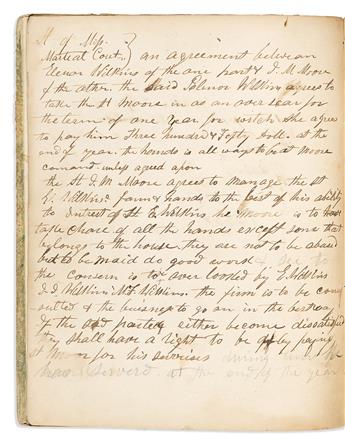 St of Miss
Marteal Cout. } an agreement between
Elenor Wilkins of the one part & J. M Moore
of the other. the Said Elenor Wilkins agrees to
take the St Moore in as an over sear for
the term of one year for witch she agrees
to pay him Three hundred & Fofty Doll. at the
end of year. the hands is all ways to be at Moore
comand unless agreed upon
the St J. M Moore agrees to manage the St
E. Wilkins farm & hands to the best of his ability
to intrest of St E Wilkins he Moore is to have
take charge of all the hands except some that
belongs to the house. they are not to be abused
but to be maid do good work
the consern is to over looked by E. Wilkins
J. D Wilkins M. F. Wilkins. the firm is to be
& the buisness to go on in the best way
If the parties either become dissatisfied
they shall have a right to be by paying
St Moore for his servises during time he
has Serverd at the end of the year